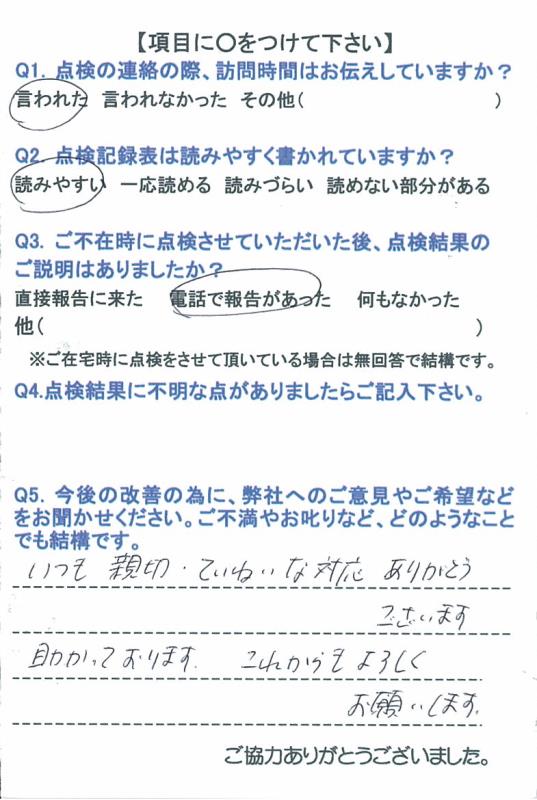 【項目に〇をつけて下さい】
Q1. 点検の連絡の際、訪問時間はお伝えしていますか?
言われた 言われなかった その他( )
Q2. 点検記録表は読みやすく書かれていますか?
読みやすい 一応読める 読みづらい 読めない部分がある
Q3. ご不在時に点検させていただいた後、点検結果の
ご説明はありましたか?
直接報告に来た 電話で報告があった 何もなかった
他( )
※ご在宅時に点検をさせて頂いている場合は無回答で結構です。
Q4.点検結果に不明な点がありましたらご記入下さい。
Q5. 今後の改善の為に、弊社へのご意見やご希望など
をお聞かせください。ご不満やお叱りなど、どのようなこと
でも結構です。
いつも 親切・ていねいな対応 ありがとう
ございます
助かっております。 これからもよろしく
お願いします。
ご協力ありがとうございました。